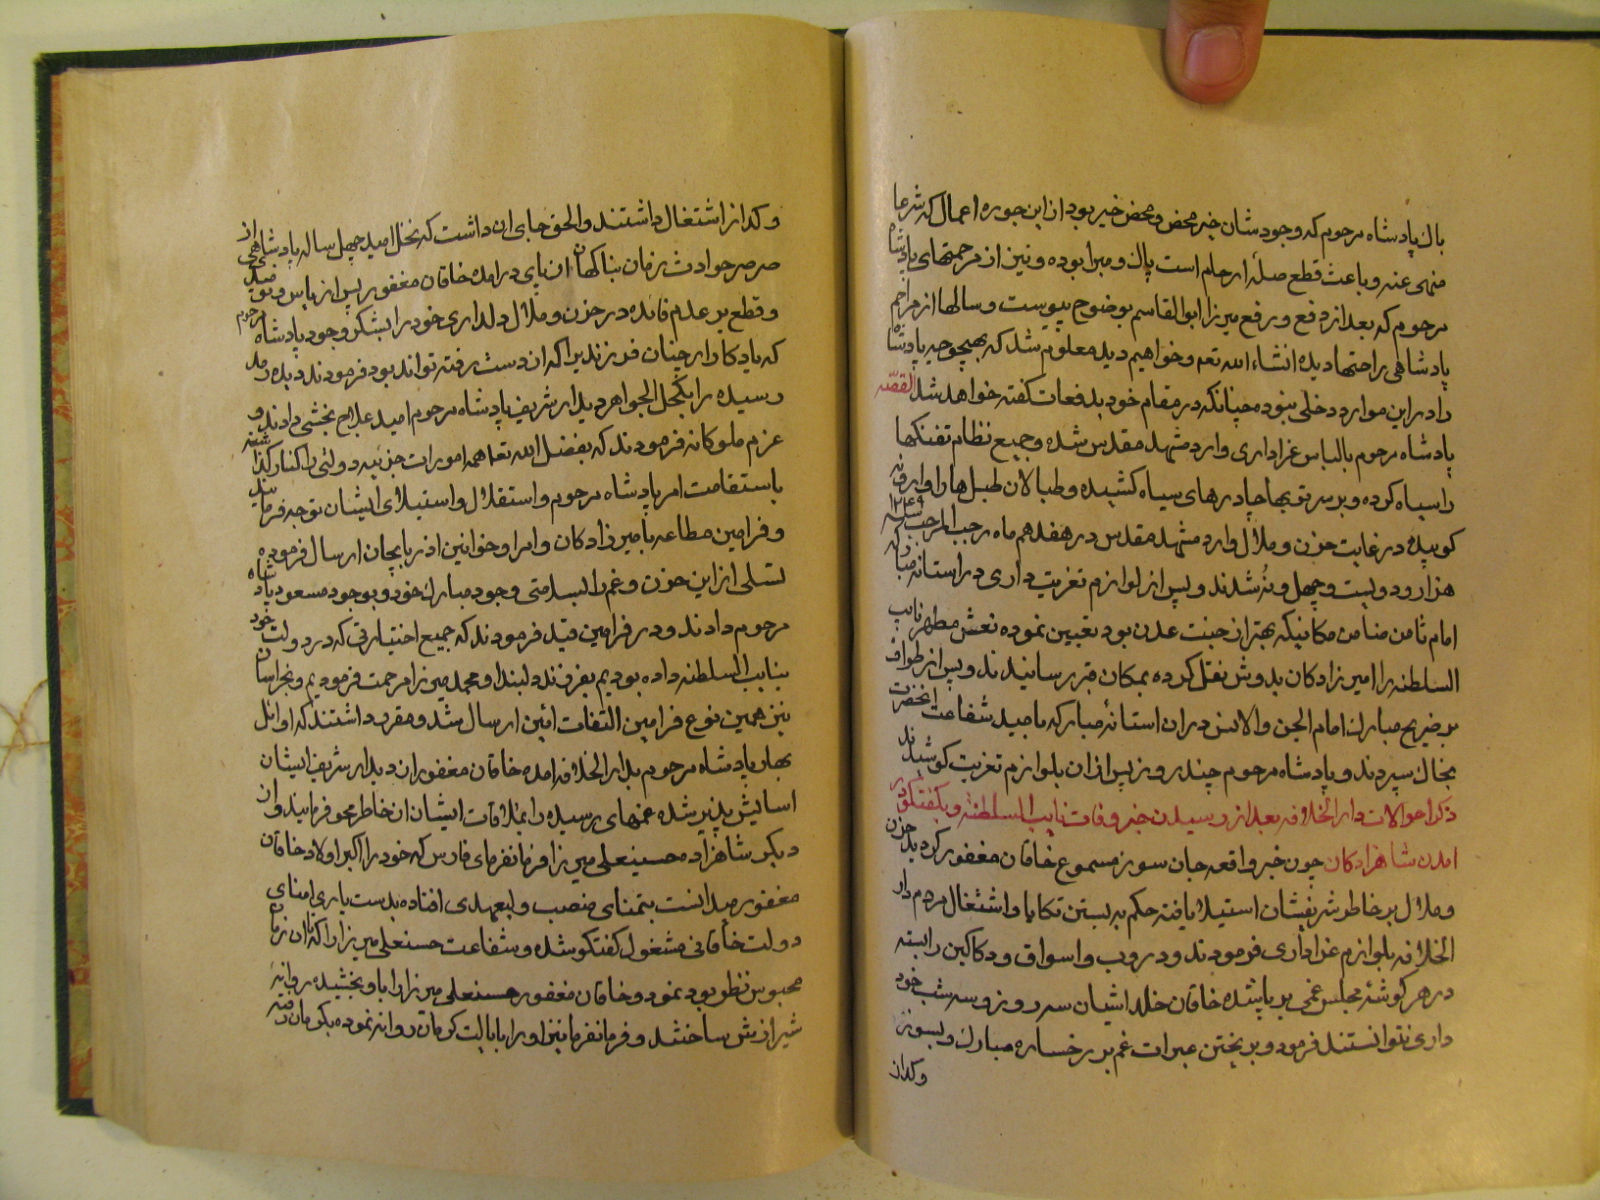 پاك پادشاه مرحوم که وجودشان خیر محض و محض خیر بود از این جوره اعمال که شرعا
منهی عنه و باعث قطع صلهٔ ارحام است پاك و مبرا بوده و نیز از مرحمتهای پادشاه
مرحوم که بعد از دفع و رفع میرزا ابوالقاسم بوضوح پیوست و سالها از مراحم
پادشاهی راحتها دیده انشاء الله تعم و خواهیم دید معلوم شد که بهیچوجه پادشاه
را در این موارد دخلی نبوده چنانکه در مقام خود بدفعات گفته خواهد شد القصّه
پادشاه مرحوم بالباس عزاداری وارد مشهد مقدس شده و جمیع نظام تفنکها
را سیاه کرده و بر سر توبها چادرهای سیاه کشیده و طبالان طبل ها را وارونه
کوبیده در غایت حزن و ملال وارد مشهد مقدس در هفدهم ماه رجب المرجب سنه ۱۲۴۹
هزار و دویست و چهل و نه شدند و پس از لوازم تعزیت داری در استانه مبارکه
امام ثامن ضامن مکانیکه بهتر از جنت عدن بود تعیین نموده نعش مطهر نایب
السلطنه را امیرزادکان بدوش نقل کرده بمکان مقرر رسانیدند و پس از طواف
بر ضریح مبارك امام الجن والانس در ان استانهٔ مبارکه بامید شفاعت انحضرت
بخاك سپردند و پادشاه مرحوم چند روز پس از ان بلوازم تعزیت کوشیدند
ذکر احوالات دار الخلافه بعد از رسیدن خبر وفات نایب السلطنه و بکفتکو در
امدن شاهزادکان چون خبر واقعه جان سوز مسموع خاقان مغفور کردید حزن
و ملال بر خاطر شریفشان استیلا یافته حکم به بستن تکایا و اشتغال مردم دار
الخلافه بلوازم عزاداری فرمودند و دروب و اسواق و دکاکین را بسته
در هر کوشهٔ مجلس غمی بر پا شده خاقان خلد اشیان سه روز و سه شب خود
داری نتوانستند فرمود و بریختن عبرات غم بر رخساره مبارك و بسوز
و کداز
و کداز اشتغال داشتند والحق جای ان داشت که نخل امید چهل ساله پادشاهی از
صرصر حوادث زمان بناکهان از پای در امده خاقان مغفور پس از یاس و نومیدی
و قطع بر عدم فائده در حزن و ملال دلداری خود را بشکر وجود پادشاه مرحوم
که یادکار از چنان فرزندیرا که از دست رفته تواند بود فرمودند دیده رمد
رسیده را بکحل الجواهر دیدار شریف پادشاه مرحوم امید علاج بخشی دادند و
عزم ملوکانه فرمودند که بفضل الله تعا همه امورات جزئیه دولتی را کنار کذاشته
باستقامت امر پادشاه مرحوم و استقلال و استیلای ایشان توجه فرمایند
و فرامین مطاعه بامیرزادکان و امرا و خوانین اذربایجان ارسال فرموده
تسلی از این حزن و غم را بسلامتی وجود مبارك خود و بوجود مسعود پادشاه
مرحوم دادند و در فرامین قید فرمودند که جمیع اختیاراتی که در دولت خود
بنایب السلطنه داده بودیم بفرزند دلبند او محمد میرزا مرحمت فرمودیم و بخراسان
نیز همین نوع فرامین التفات ائین ارسال شد و مقرر داشتند که اوائل
بهار پادشاه مرحوم بدار الخلافه امده خاقان مغفور از دیدار شریف ایشان
اسایش پذیر شده غمهای رسیده را بملاقات ایشان از خاطر محو فرمایند و از
دیکر شاهزاده حسینعلی میرزا فرمانفرمای فارس که خود را اکبر اولاد خاقان
مغفور میدانست بتمنای منصب ولیعهدی افتاده بدست یاری امنای
دولت خاقانی مشغول کفتکو شده و شفاعت حسنعلی میرزا را که تا ان زمان
محبوس نظر بود نمود و خاقان مغفور حسنعلی میرزا را باو بخشیده روانهٔ
شیرازش ساختند و فرمانفرما نیز او را بایالت کرمان روانه نموده بکرمان رفته